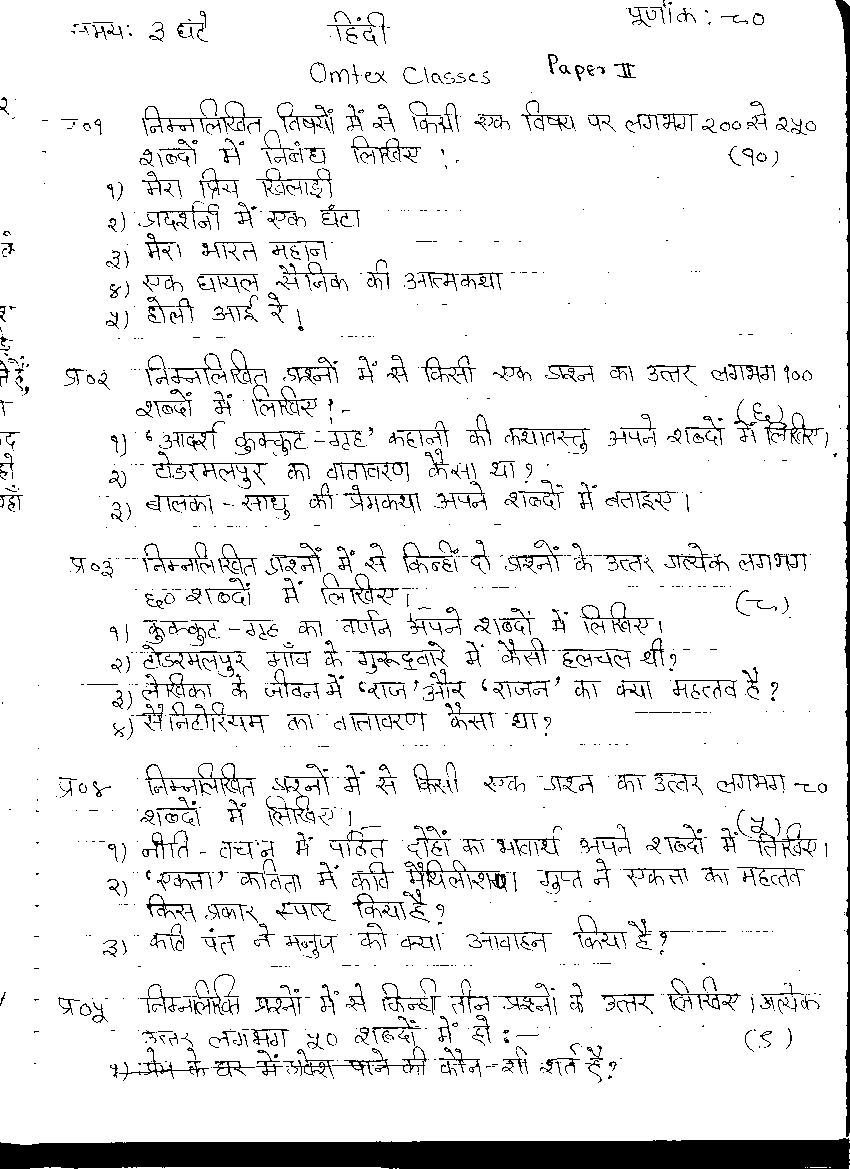 समय: ३ घंटे हिंदी पूर्णांक: ८०
Omtex Classes Paper II
प्र०१ निम्नलिखित विषयों में से किसी एक विषय पर लगभग २०० से २५०
शब्दों में निबंध लिखिए :- (१०)
१) मेरा प्रिय खिलाड़ी
२) प्रदर्शनी में एक घंटा
३) मेरा भारत महान
४) एक घायल सैनिक की आत्मकथा
५) होली आई रे!
प्र०२ निम्नलिखित प्रश्नों में से किसी एक प्रश्न का उत्तर लगभग १००
शब्दों में लिखिए :- (६)
१) 'आदर्श कुक्कुट-गृह' कहानी की कथावस्तु अपने शब्दों में लिखिए।
२) टोडरमलपुर का वातावरण कैसा था?
३) बालका-साधु की प्रेमकथा अपने शब्दों में बताइए।
प्र०३ निम्नलिखित प्रश्नों में से किन्हीं दो प्रश्नों के उत्तर प्रत्येक लगभग
६० शब्दों में लिखिए। (८)
१) कुक्कुट-गृह का वर्णन अपने शब्दों में लिखिए।
२) टोडरमलपुर गाँव के गुरूद्वारे में कैसी हलचल थी?
३) लेखिका के जीवन में 'राज' और 'राजन' का क्या महत्तव है?
४) सैनिटोरियम का वातावरण कैसा था?
प्र०४ निम्नलिखित प्रश्नों में से किसी एक प्रश्न का उत्तर लगभग ८०
शब्दों में लिखिए। (५)
१) नीति-वचन में पठित दोहों का भावार्थ अपने शब्दों में लिखिए।
२) 'एकता' कविता में कवि मैथिलीशरण गुप्त ने एकता का महत्तव
किस प्रकार स्पष्ट किया है?
३) कवि पंत ने मनुज को क्या आवाहन किया है?
प्र०५ निम्नलिखि प्रश्नों में से किन्ही तीन प्रश्नों के उत्तर लिखिए। प्रत्येक
उत्तर लगभग ५० शब्दों में हो :- (९)
१) प्रेम के घर में प्रवेश पाने की कौन-सी शर्त है?